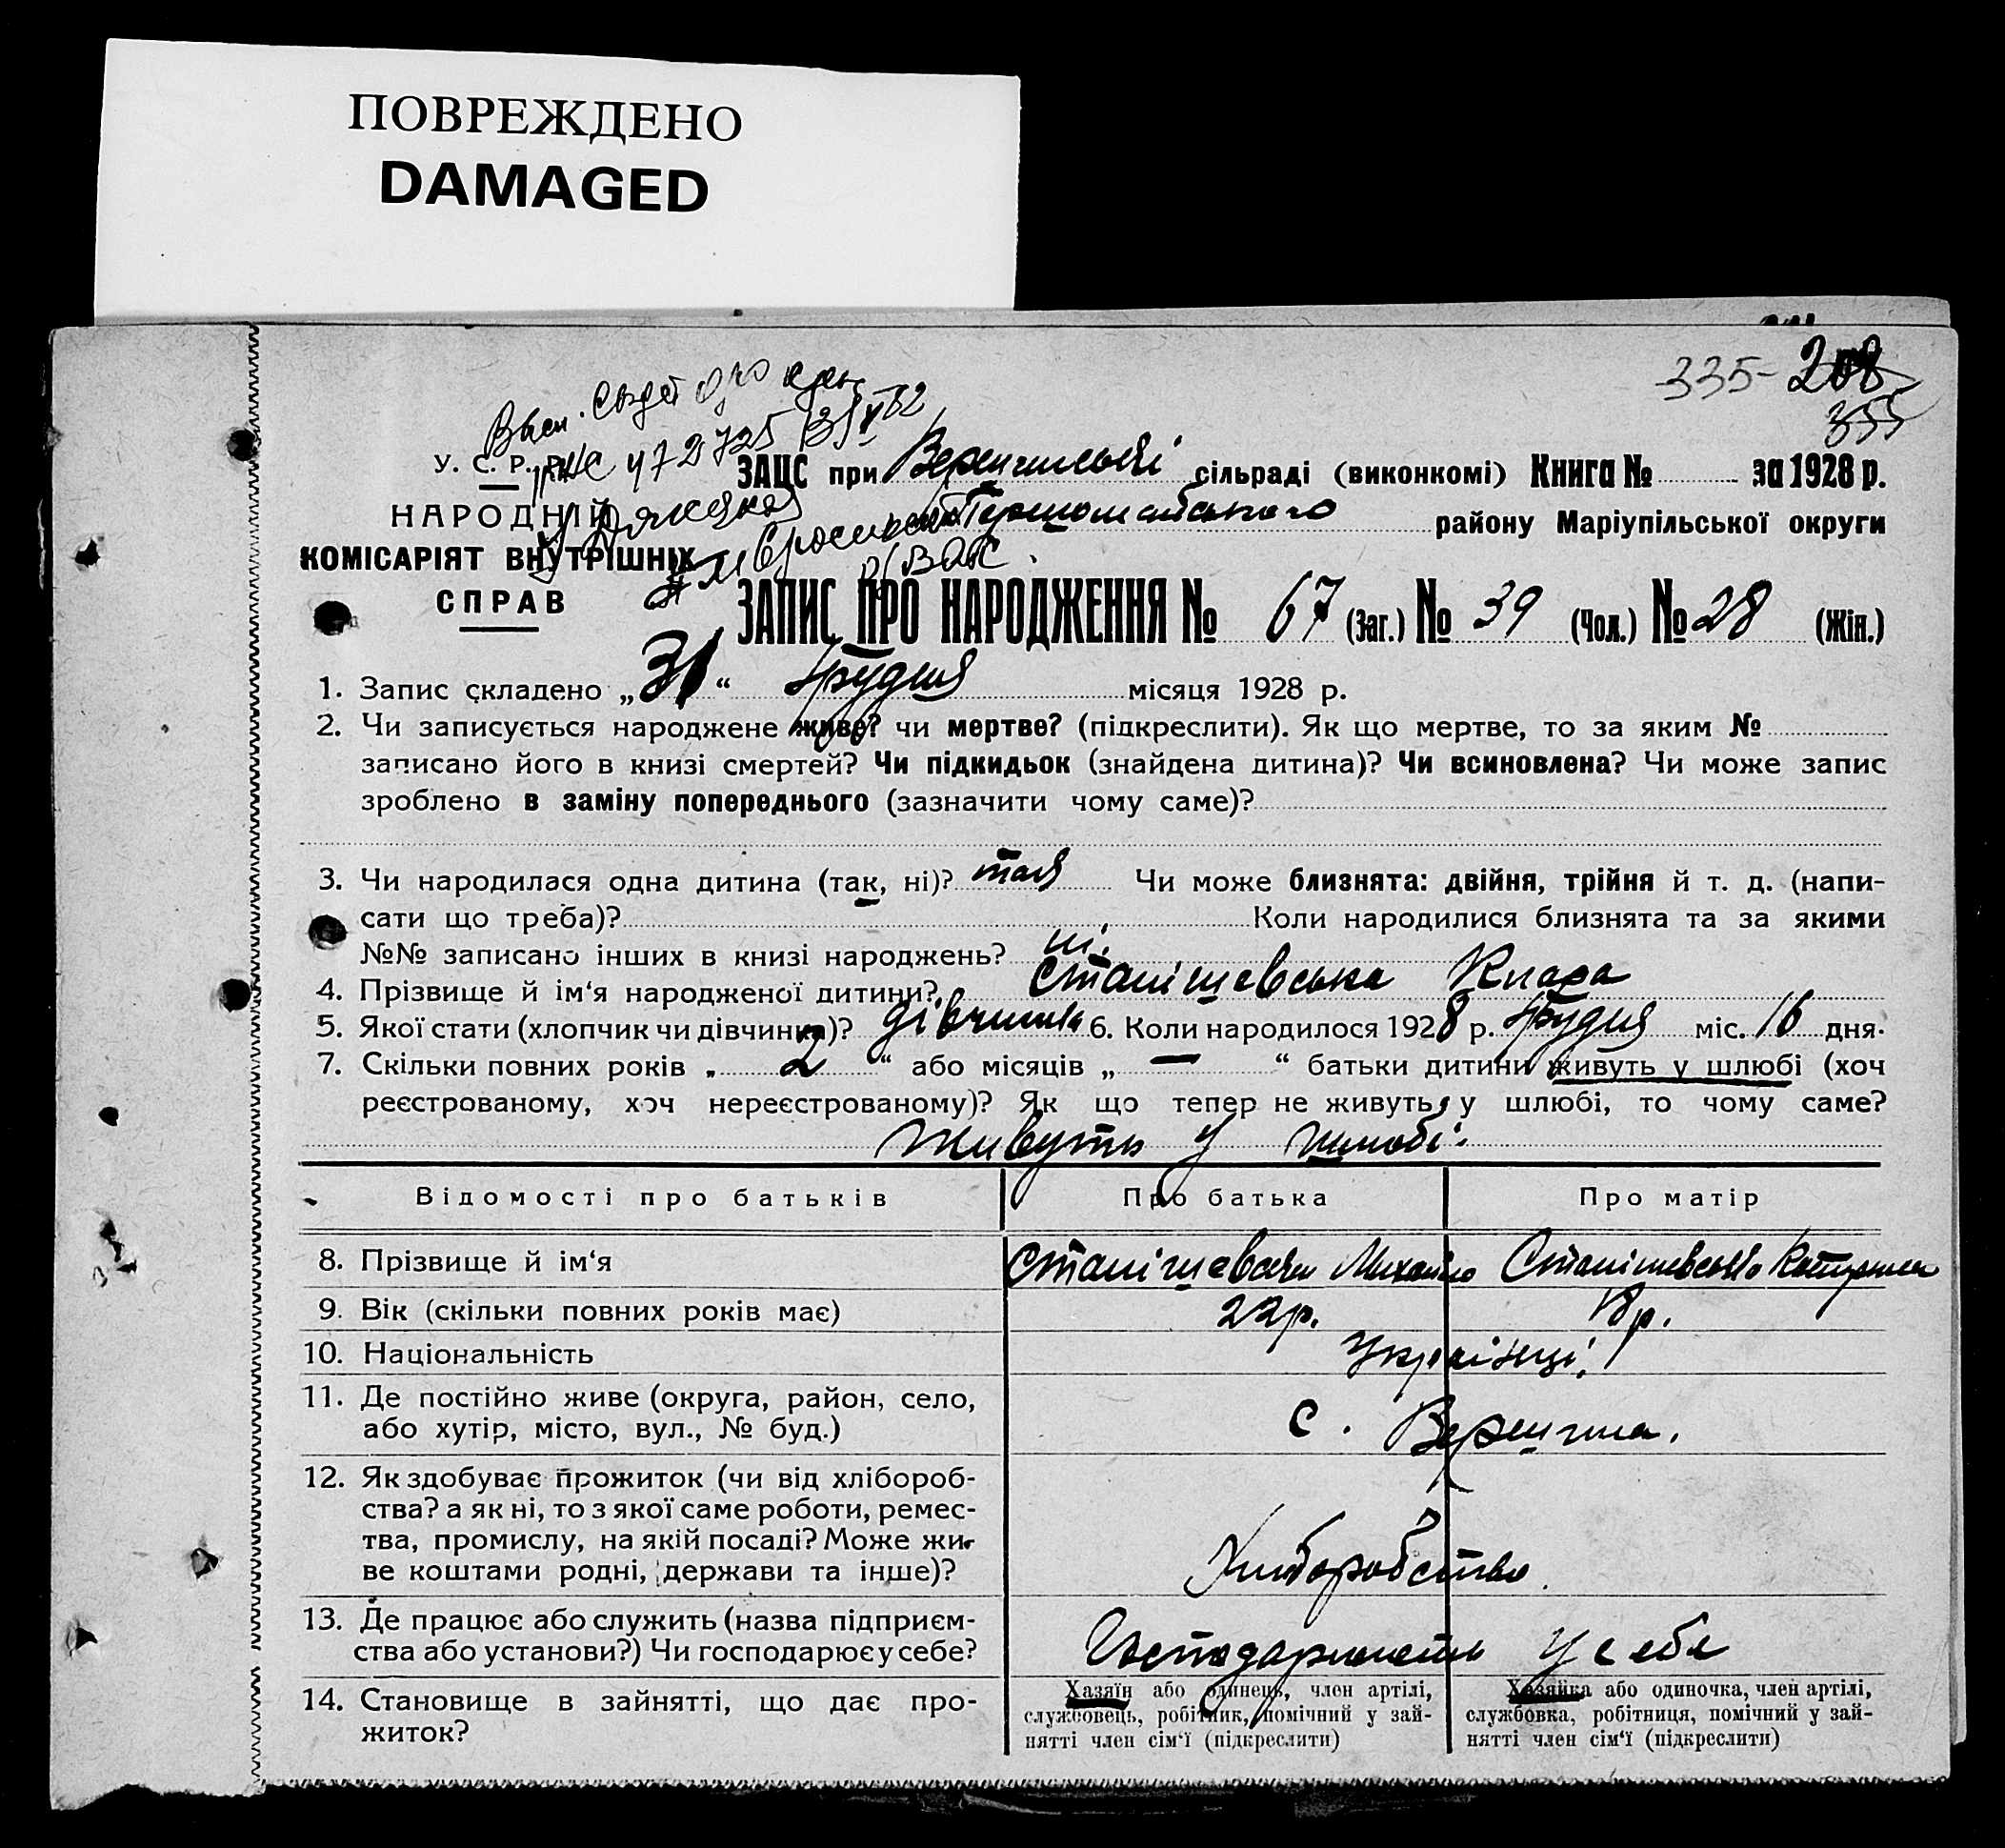 ПОВРЕЖДЕНО
DAMAGED
335- 208
355
У. С. Р. Р.
ЗАЦС при сільраді (виконкомі) Книга № за 1928 р.
НАРОДНІЙ
району Маріупільської округи
КОМІСАРІЯТ ВНУТРІШНІХ
СПРАВ
ЗАПИС ПРО НАРОДЖЕННЯ № 67 (Заг.) № 39 (Чол.) № 28 (Жін.)
1. Запис складено „31“ Грудня місяця 1928 р.
2. Чи записується народжене живе? чи мертве? (підкреслити). Як що мертве, то за яким №
записано його в книзі смертей? Чи підкидьок (знайдена дитина)? Чи всиновлена? Чи може запис
зроблено в заміну попереднього (зазначити чому саме)?
3. Чи народилася одна дитина (так, ні)? Чи може близнята: двійня, трійня й т. д. (напи-
сати що треба)? Коли народилися близнята та за якими
№№ записано інших в книзі народжень? ні.
4. Прізвище й ім‘я народженої дитини? Станішевська Клара
5. Якої стати (хлопчик чи дівчинка)? дівчинка 6. Коли народилося 1928 р. Грудня міс. 16 дня.
7. Скільки повних років „ 2 “ або місяців „ — “ батьки дитини живуть у шлюбі (хоч
реєстрованому, хоч нереєстрованому)? Як що тепер не живуть у шлюбі, то чому саме?
живуть у шлюбі.
Відомості про батьків Про батька Про матір
8. Прізвище й ім‘я Станішевський Михайло Станішевська Катерина
9. Вік (скільки повних років має) 22 р. 18 р.
10. Національність Українці.
11. Де постійно живе (округа, район, село,
або хутір, місто, вул., № буд.) с.
12. Як здобуває прожиток (чи від хлібороб-
ства? а як ні, то з якої саме роботи, ремес-
тва, промислу, на якій посаді? Може жи-
ве коштами родні, держави та інше)? Хліборобство.
13. Де працює або служить (назва підприєм-
ства або установи?) Чи господарює у себе? Господарюють у себе
14. Становище в зайнятті, що дає про-
житок?
Хазяїн або одинець, член артілі,
службовець, робітник, помічний у зай-
нятті член сім‘ї (підкреслити)
Хазяйка або одиночка, член артілі,
службовка, робітниця, помічний у зай-
нятті член сім‘ї (підкреслити)